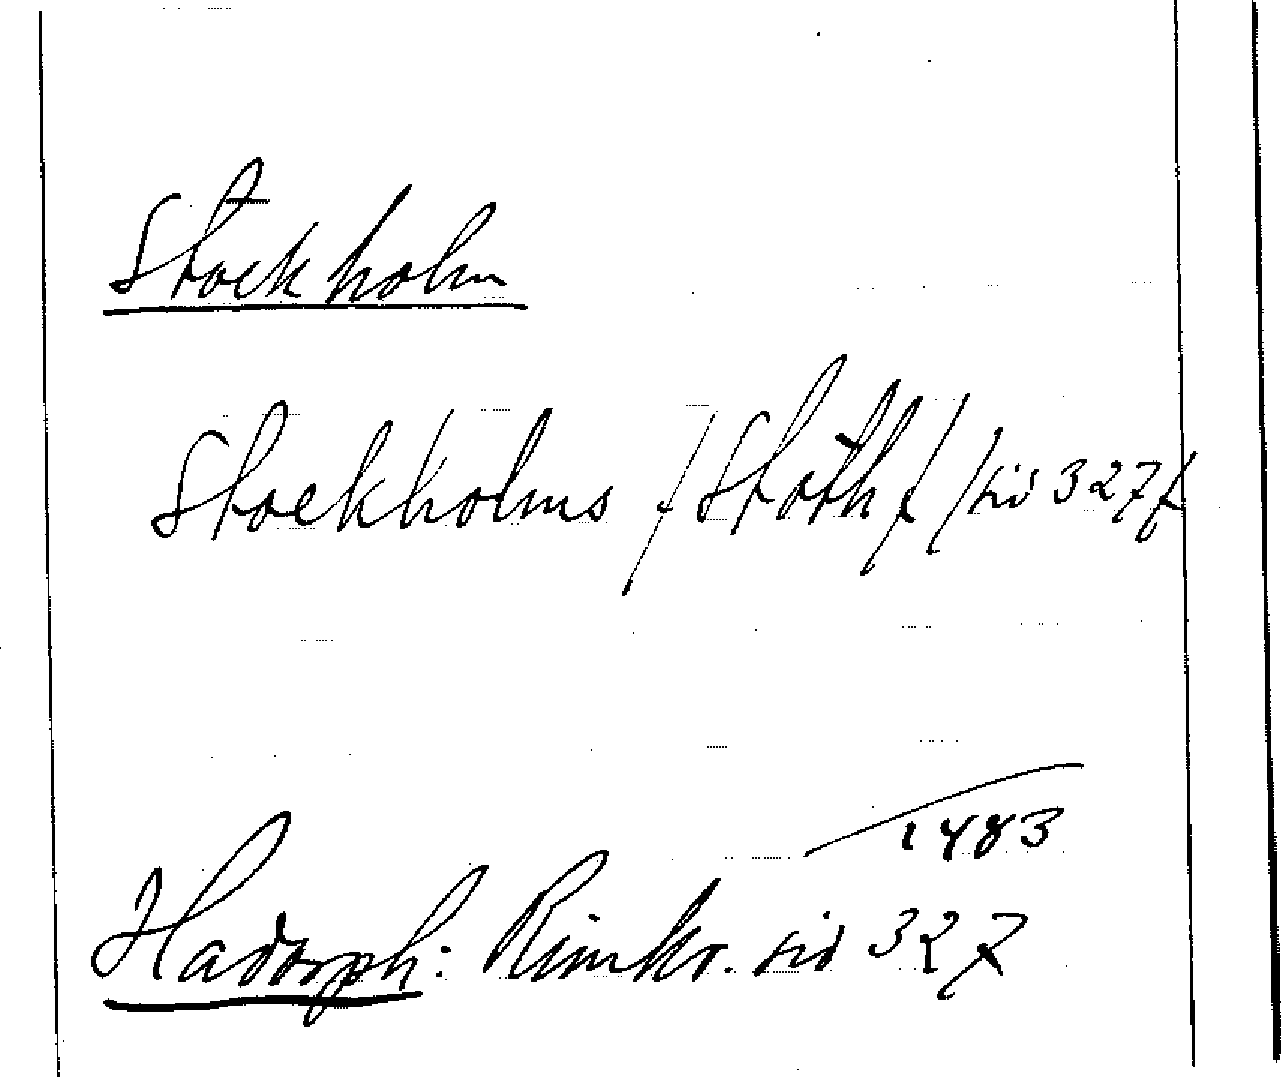 Stockholm
Stockholms / Stokh / / sid 327 f
1483
Hadorph: Rimkr. sid 327